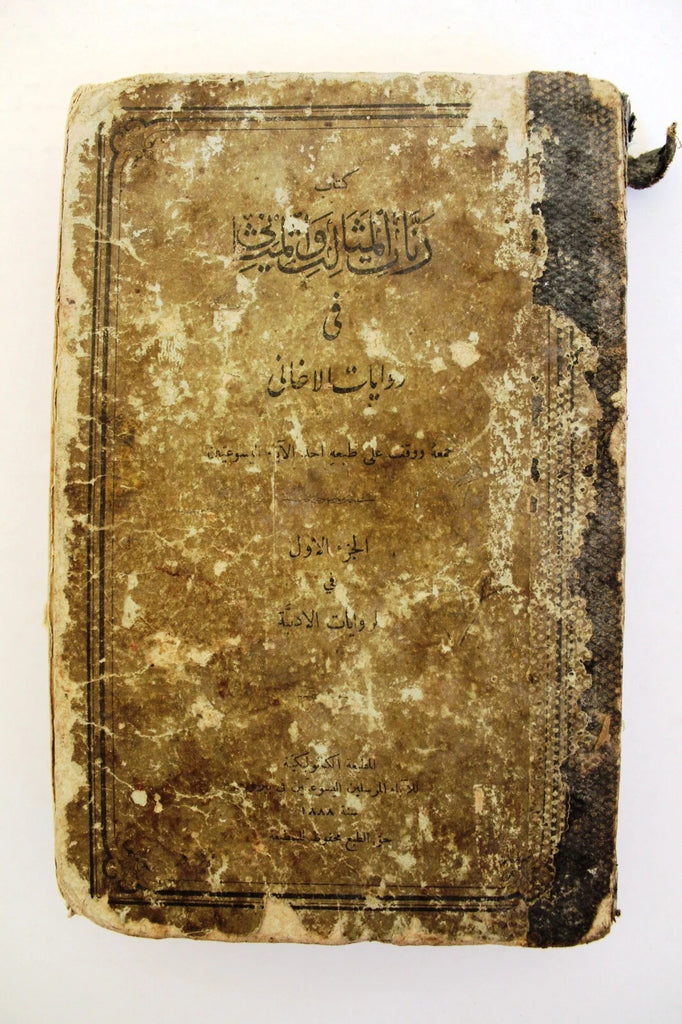 كتاب
رنَّات المثالث والمثاني
في
روايات الاغاني
جمعهُ ووقف على طبعهِ احد الآباء اليسوعيين
الجزء الاول
في
الروايات الادبيَّة
المطبعة الكاثوليكيَّة
للآباء المرسلين اليسوعيين في بيروت
سنة ١٨٨٨
حق الطبع محفوظ للمطبعة